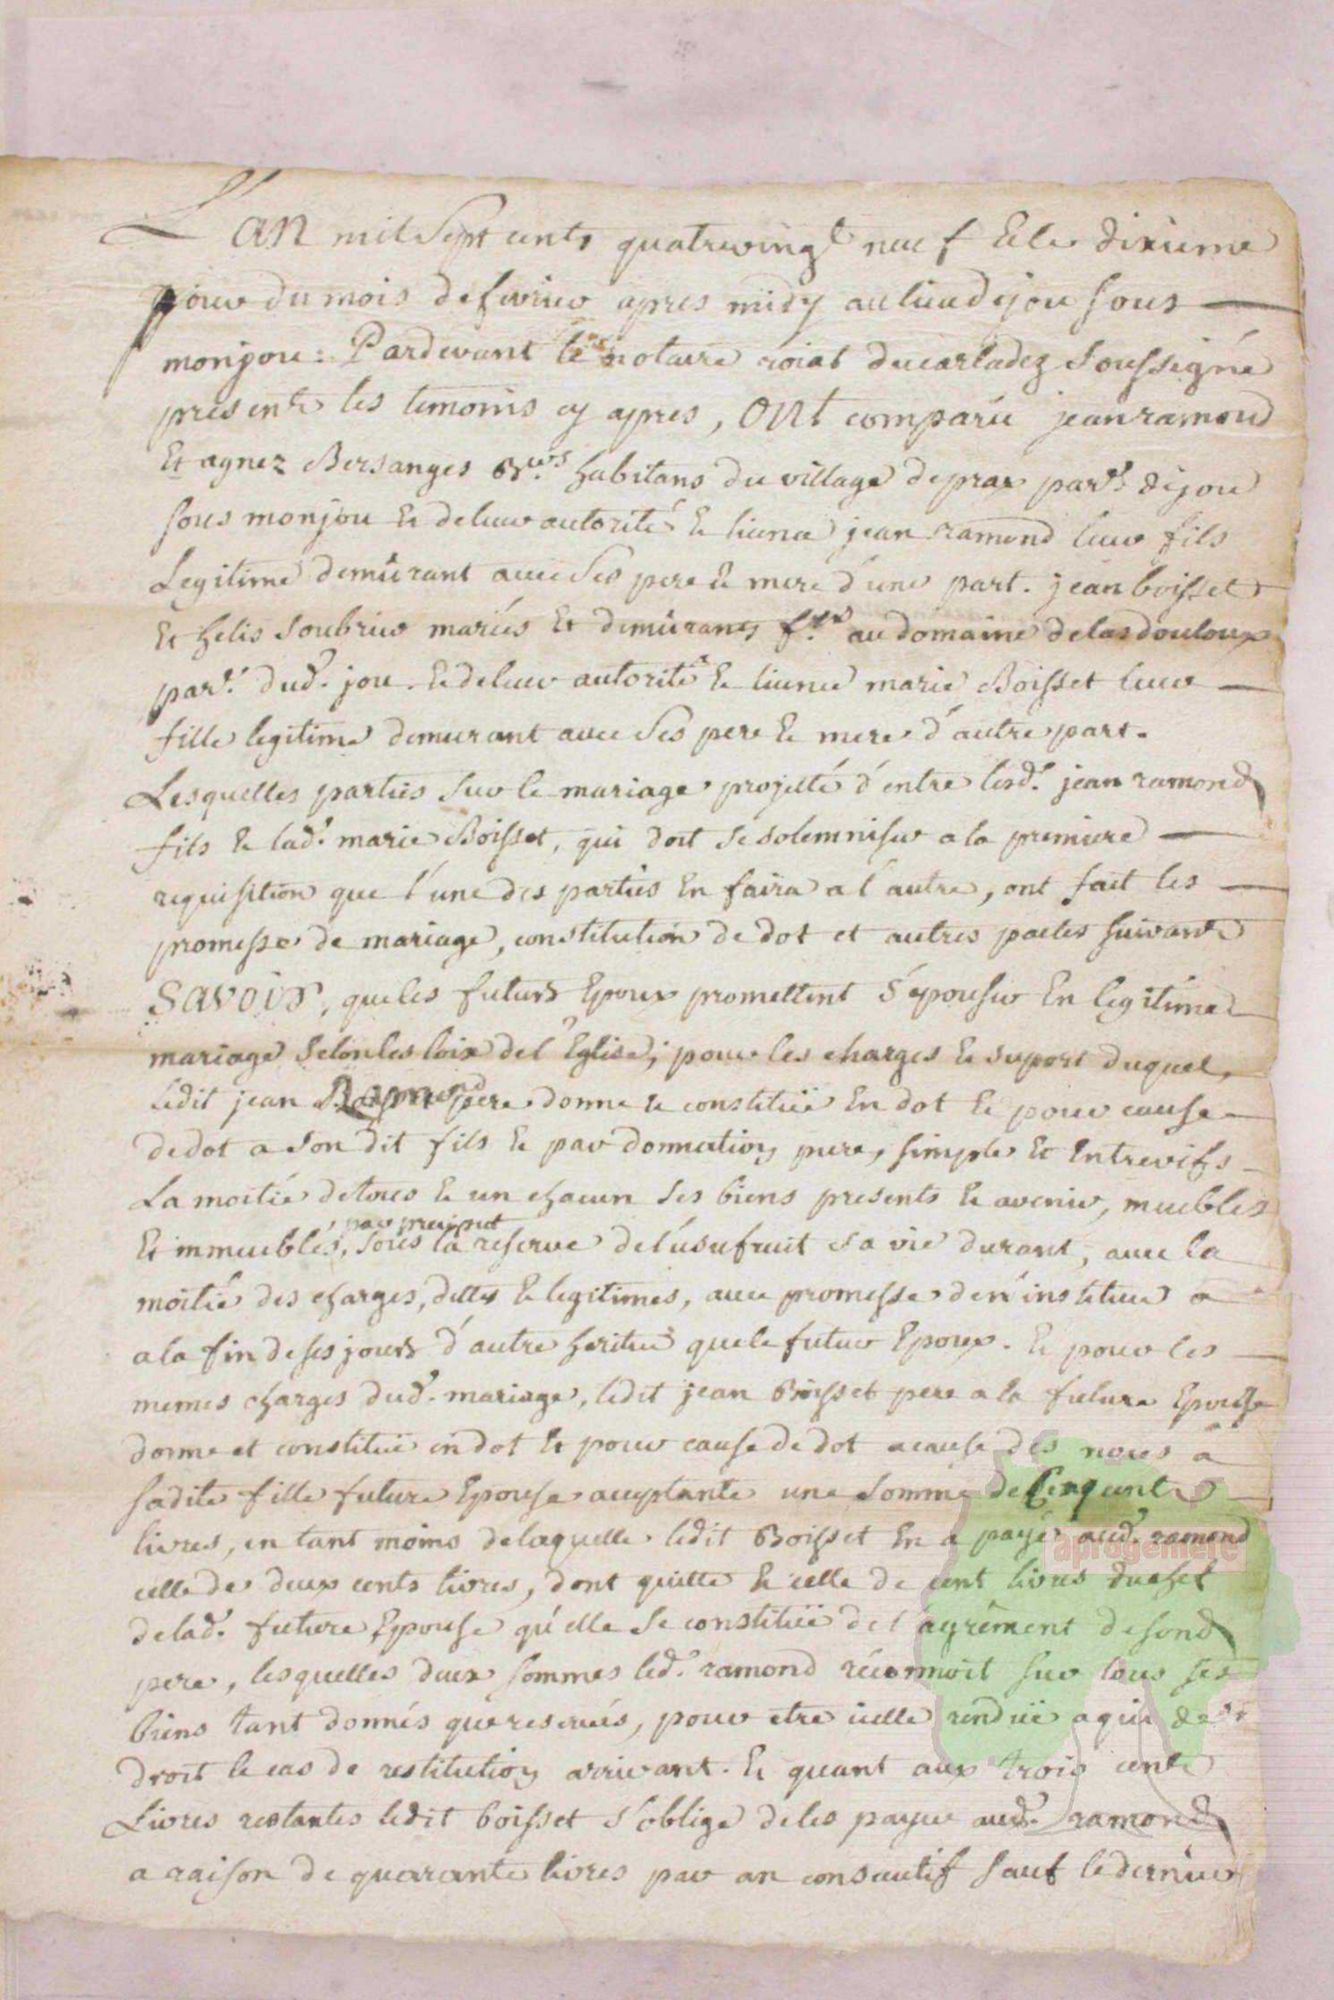 L'an mil sept cents quatrevingt neuf & le dixieme
jour du mois de fevrier apres midy au lieu de jou sous
monjou: Pardevant le notaire roial du carladez soussigné
presents les temoins cy apres, ont comparu jean ramond
Et agnez Bersanges habitans du village de prax par.e de jou
sous monjou & de leur autorité & licence jean ramond leur fils
Legitime demûrant avec ses pere & mere d'une part. jean boisset
Et helis soubrier mariés Et demûrants au domaine de las douloux
par.e dud. jou. & de leur autorité & licence marie Boisset leur
fille legitime demurant avec ses pere & mere d'autre part.
Lesquelles parties sur le mariage projetté d'entre led. jean ramond
fils & lad. marie Boisset, qui doit se solemniser a la premiere
requisition que l'une des parties En faira a l'autre, ont fait les
promesse de mariage, constitution de dot et autres pactes suivants
SAVOIR, que les futurs Epoux promettent s'épouser En legitime
mariage selon les loix de l'Eglise; pour les charges & suport duquel,
ledit jean Ramond pere donne & constitüe En dot & pour cause
de dot a son dit fils & par donnation pure, simple Et Entrevifs
La moitié de tous & un chacun ses biens presents & avenir, meubles
par preciput
Et immeubles, sous la reserve de l'usufruit sa vie durant, avec la
moitié des charges, dettes & legitimes, avec promesse de n'instituer a
a la fin de ses jours d'autre heritier que le futur Epoux. & pour les
memes charges dud. mariage, ledit jean Boisset pere a la future Epouse
donne et constitüe en dot & pour cause de dot a cause des noces a
sadite fille future Epouse acceptante une somme de Cinq cents
livres, en tant moins de laquelle ledit Boisset En a payé aud. ramond
celle de deux cents livres, dont quitte & celle de cent livres du chef
de lad. future Epouse qu'elle se constitüe de l'agrément de sond
pere, lesquelles deux sommes led. ramond réconnoit sur tous ses
biens tant donnés que reservés, pour etre icelle rendüe a qui de
droit le cas de restitution arrivant. & quant aux trois cents
Livres restantes ledit boisset s'oblige de les payer aud. ramond
a raison de quarante livres par an consecutif sauf le dernier
aprogemere